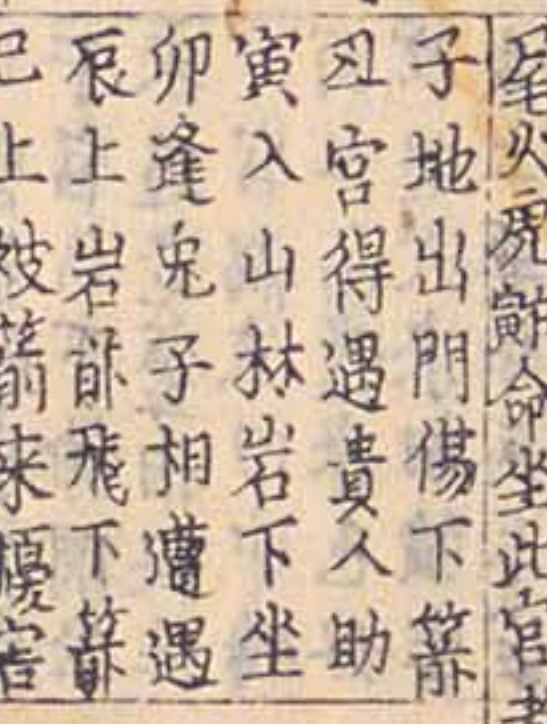 尾火虎 命坐此宮者
子地出門傷下箭
丑宮得遇貴人助
寅入山林岩下坐
卯逢兎子相遭遇
辰上岩 飛下箭
巳上被箭來擾害